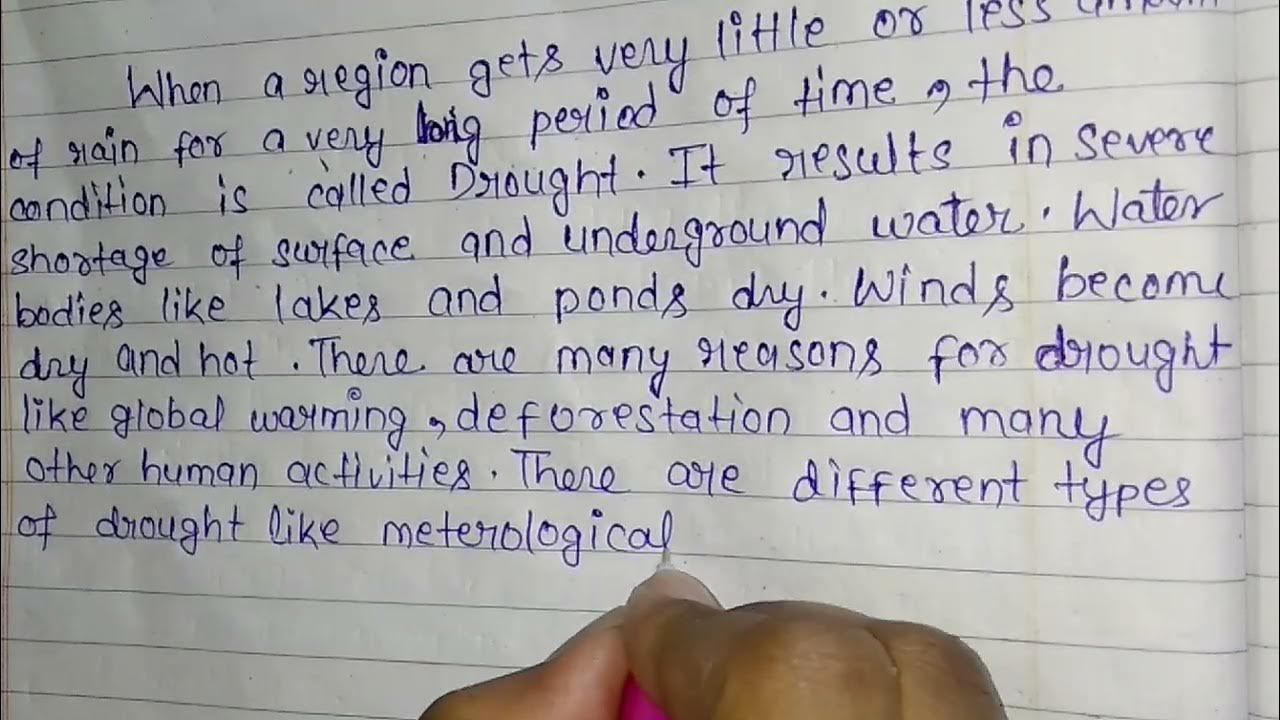 When a region gets very little or less amoun
of rain for a very long period of time, the
condition is called Drought. It results in severe
shortage of surface and underground water. Water
bodies like lakes and ponds dry. Winds become
dry and hot. There are many reasons for drought
like global warming, deforestation and many
other human activities. There are different types
of drought like meterological